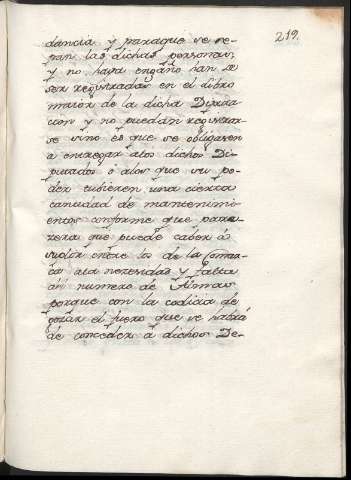 219.
dancia y paraque se se-
pan las dichas personas,
y no haya engaño han de
ser registradas en el libro
maior de la dicha Diputa-
cion y no puedan registrar-
se sino es que se obliguen
a entregar alos dichos Di-
putados ó alos que su po-
der tubieren una cierta
cantidad de mantenimi-
entos conforme que pare-
zera que puede caber á
suplir entre los de la Comar-
ca ala necesidad y falta
del numero de Almas
porque con la codicia de
gozar el fuero que se habrá
de conceder á dichos De-